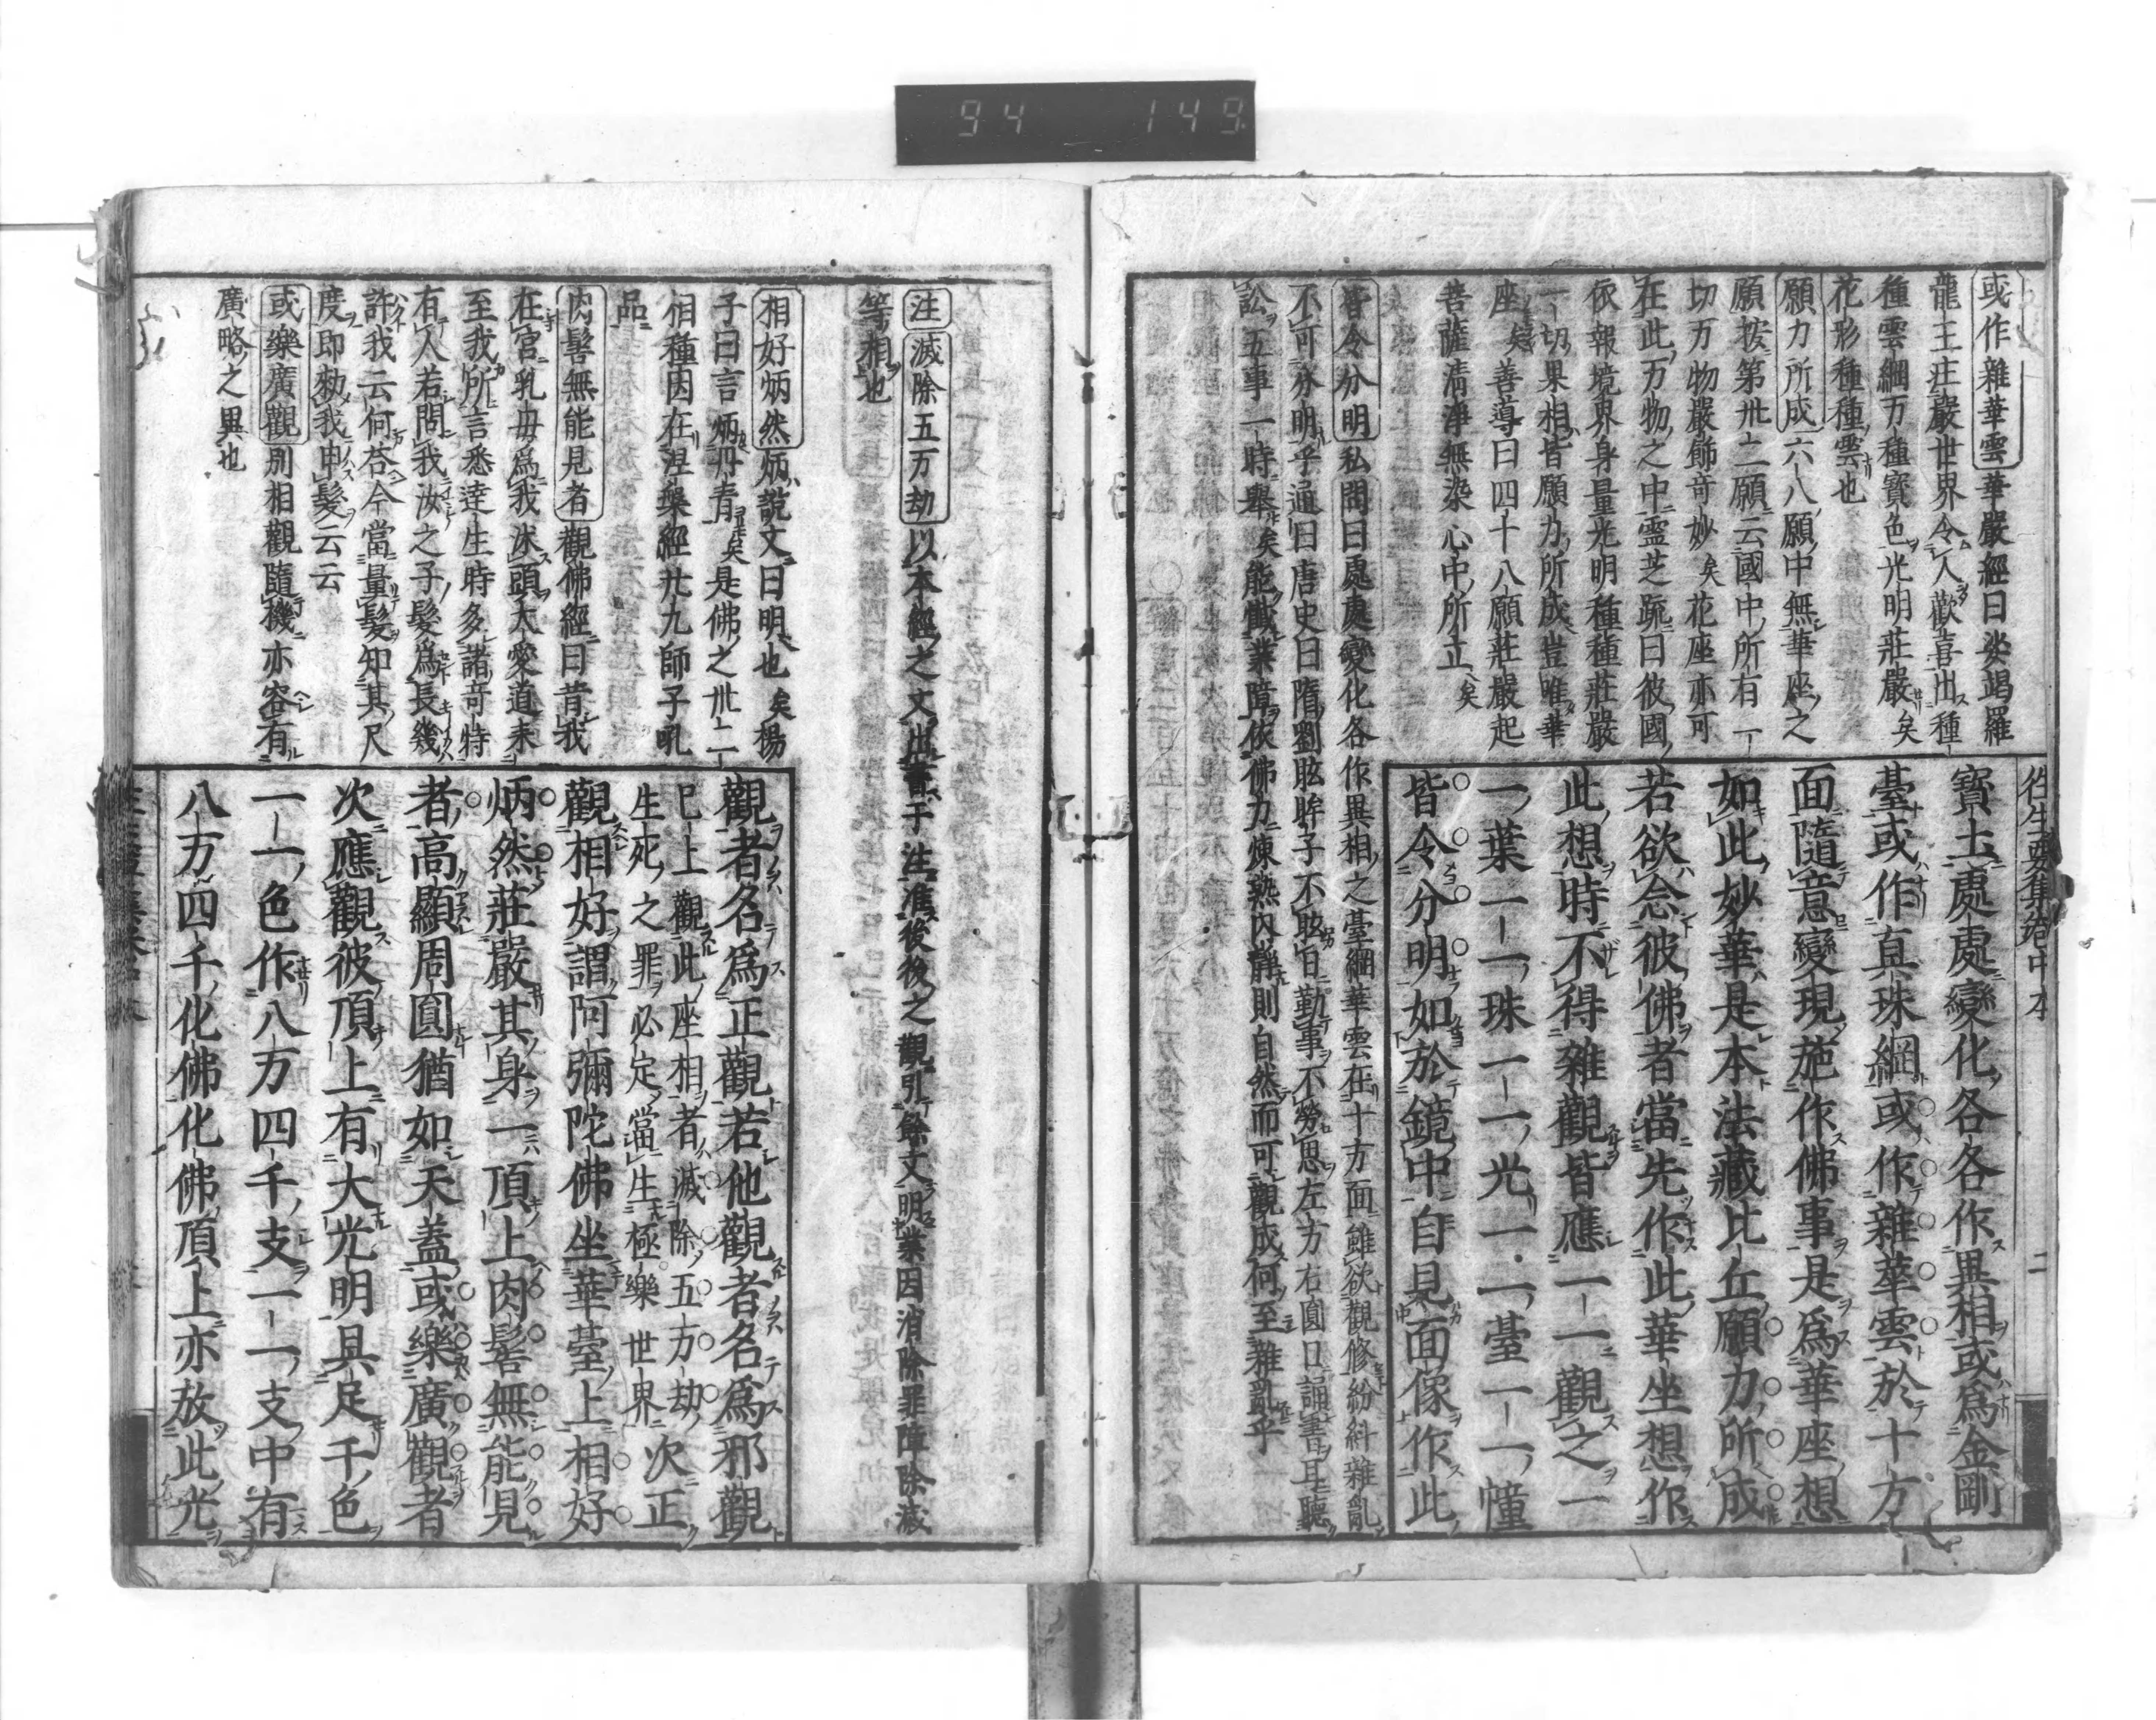 94 149
往生要集卷中本
二
或作雜華雲華嚴經曰娑竭羅
龍王庄嚴世界令人歡喜出種一
種雲網万種寶色光明莊嚴矣
花形種種雲也
願力所成六八願中無華座之
願按第卅二願云國中所有一
切万物嚴飾竒妙矣花座亦可
在此万物之中霊芝疏曰彼國
依報境界身量光明種種莊嚴
一切果相皆願力所成豈唯華
座矣善導曰四十八願莊嚴起
菩薩清淨無染心中所立矣
皆令分明私問曰處處變化各作異相之臺網華雲在十方面雖欲觀修紛糾雜亂
不可分明乎通曰唐史曰隋劉眩眸子不眩自勤事不勞思左方右圓口誦書耳聽
訟五事一時舉矣能懺業障依佛力煉熟内靜則自然而可觀成何至雜亂乎
寶土處處變化各各作異相或爲金剛
臺或作真珠網或作雜華雲於十方
面隨意變現施作佛事是爲華座想
如此妙華是本法藏比丘願力所成
若欲念彼佛者當先作此華坐想作
此想時不得雜觀皆應一一觀之一
一葉一一珠一一光一一臺一一幢
皆令分明如於鏡中自見面像作此
注滅除五万劫以本經之文出書于注准後後之觀引餘文明業因消除罪障除滅
等相也
相好炳然炳說文曰明也矣楊
子曰言炳丹青矣是佛之卅二
相種因在涅槃經廿九師子吼
品
肉髻無能見者觀佛經曰昔我
在宮乳母爲我沐頭大愛道來
至我所言悉達生時多諸竒特
有人若問我汝之子髮爲長幾
許我云何荅今當量髮知其尺
度即勅我申髮云云
或樂廣觀別相觀隨機亦容有
廣略之異也
觀者名爲正觀若他觀者名爲邪觀
已上觀此座相者滅除五万劫
生死之罪必定當生極樂世界次正
觀相好謂阿彌陀佛坐華臺上相好
炳然莊嚴其身一頂上肉髻無能見
者高顯周圓猶如天蓋或樂廣觀者
次應觀彼頂上有大光明具足千色
一一色作八万四千支一一支中有
八万四千化佛化佛頂上亦放此光